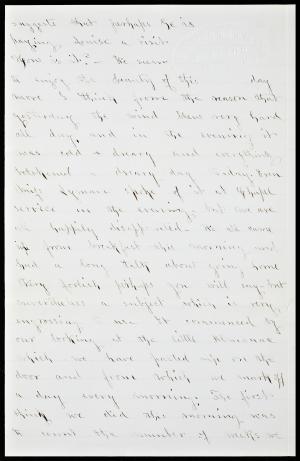 suggests that perhaps he is
paying Louise a visit.
How is it? — We seem
to enjoy the beauty of this day
more I think from the reason that
yesterday the wind blew very hard
all day, and in the evening it
was cold & dreary and everything
betokened a dreary day today. Even
Miss Lyman spoke of it at Chapel
service in the evening, but we are
all happily disappointed. As we came
up from breakfast this morning we
had a long talk about going home
Very foolish perhaps you will say but
nevertheless a subject which is very
engrossing to us. It commenced by
our looking at the little Almanac
which we have pasted up on the
door and from which we mark off
a day every morning. The first
thing we did this morning was
to count the number of weeks we